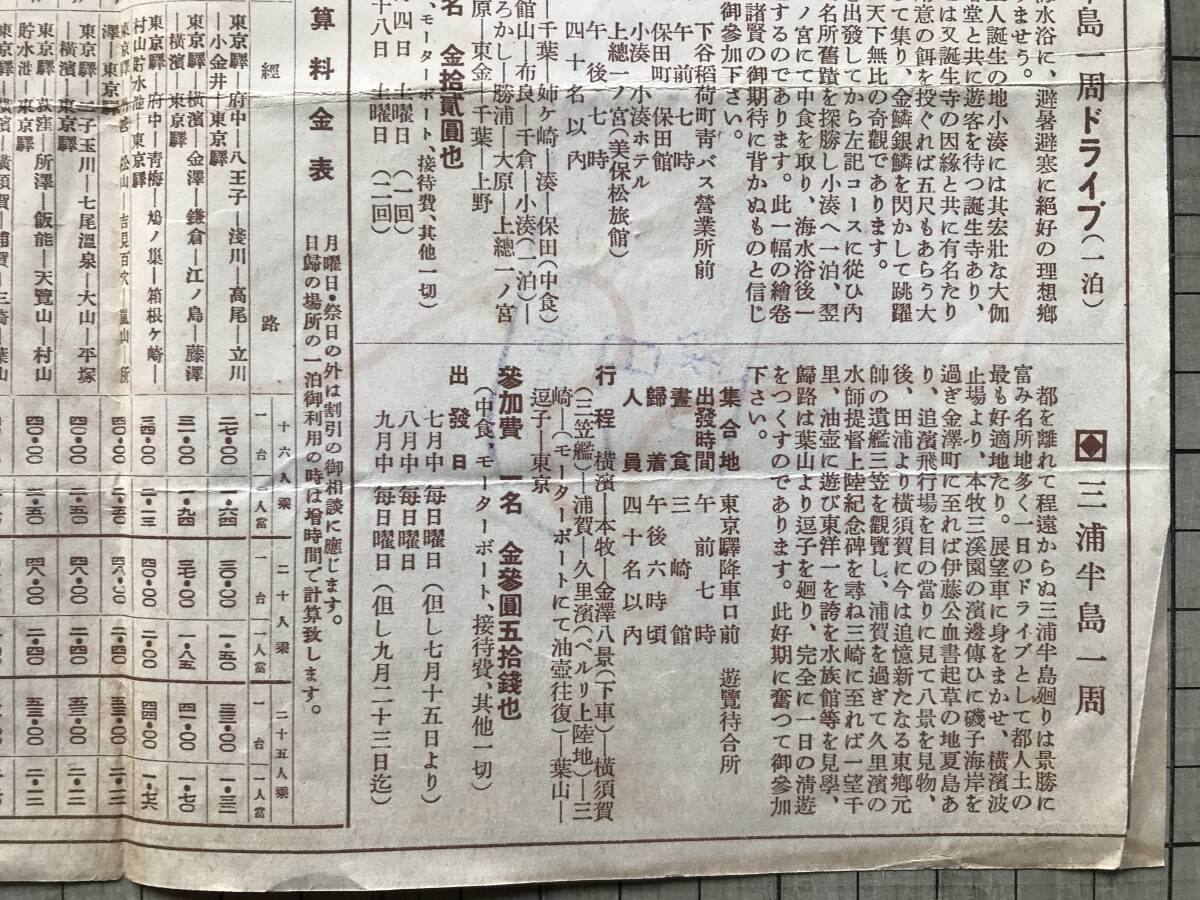 半島一周ドライブ(一泊)
海水浴に、避暑避寒に絶好の理想郷
りませう。
上人誕生の地小湊には其宏壯な大伽
堂と共に遊客を待つ誕生寺あり、
は又誕生寺の因緣と共に有名なり
意の餌を投ぐれば五尺もあらう大
して集り、金鱗銀鱗を閃かして跳躍
天下無比の奇觀であります。
を出發してから左記コースに從ひ內
名所舊蹟を探勝し小湊へ一泊、翌
ノ宮にて中食を取り、海水浴後一
するのであります。此一幅の繪卷
諸賢の御期待に背かぬものと信じ
御參加下さい。
下谷稻荷町靑バス營業所前
午前七時
保田町 保田館
小湊 小湊ホテル
上總一ノ宮(美保松旅館)
午後七時
四十名以內
―千葉―姉ヶ崎―湊―保田(中食)
館山―布良―千倉―小湊(一泊)―
ろかし―勝浦―大原―上總一ノ宮
原―東金―千葉―上野
名 金拾貳圓也
、モーターボート、接待費、其他一切)
四日 土曜日 (一回)
十八日 土曜日 (二回)
◆三浦半島一周
都を離れて程遠からぬ三浦半島廻りは景勝に
富み名所地多く一日のドライブとして都人士の
最も好適地たり。展望車に身をまかせ、橫濱波
止場より、本牧三溪園の濱邊傳ひに磯子海岸を
過ぎ金澤町に至れば伊藤公血書起草の地夏島あ
り、追濱飛行場を目の當りに見て八景を見物、
後、田浦より橫須賀に今は追憶新たなる東鄕元
帥の遺艦三笠を觀覽し、浦賀を過ぎて久里濱の
水師提督上陸紀念碑を尋ね三崎に至れば一望千
里、油壺に遊び東洋一を誇を水族館等を見學、
歸路は葉山より逗子を廻り、完全に一日の淸遊
をつくすのであります。此好期に奮つて御參加
下さい。
集合地 東京驛降車口前 遊覽待合所
出發時間 午前七時
晝食 三崎館
歸着 午後六時頃
人員 四十名以內
行程 橫濱―本牧―金澤八景(下車)―橫須賀
(三笠艦)―浦賀―久里濱(ペルリ上陸地)―三
崎―(モーターボートにて油壺往復)―葉山―
逗子―東京
參加費 一名 金參圓五拾錢也
(中食、モーターボート、接待費、其他一切)
出發日
七月中 每日曜日(但し七月十五日より)
八月中 每日曜日
九月中 每日曜日(但し九月二十三日迄)
算料金表
月曜日・祭日の外は割引の御相談に應じます。
日歸の場所の一泊御利用の時は增時間で計算致します。
經路 十六人乘 二十人乘 二十五人乘
一台 一人當 一台 一人當 一台 一人當
東京驛―府中―八王子―淺川―高尾―立川
―小金井―東京驛 二七・00 一・六四 三0・00 一・五0 三三・00 一・三二
東京驛―橫濱―金澤―鎌倉―江ノ島―藤澤
―橫濱―東京驛 三一・00 一・九四 三七・00 一・八五 四一・00 一・七0
東京驛―府中―靑梅―鳩ノ巢―箱根ヶ崎―
村山貯水池―東京驛 三四・00 二・一三 四0・00 二・00 四四・00 一・七六
東京驛―二子玉川―七尾溫泉―大山―平塚
―橫濱―東京驛 四0・00 二・五0 四八・00 二・四0 五三・00 二・一二
東京驛―荻窪―所澤―飯能―天覽山―村山
貯水池―東京驛 四0・00 二・五0 四八・00 二・四0 五三・00 二・一二